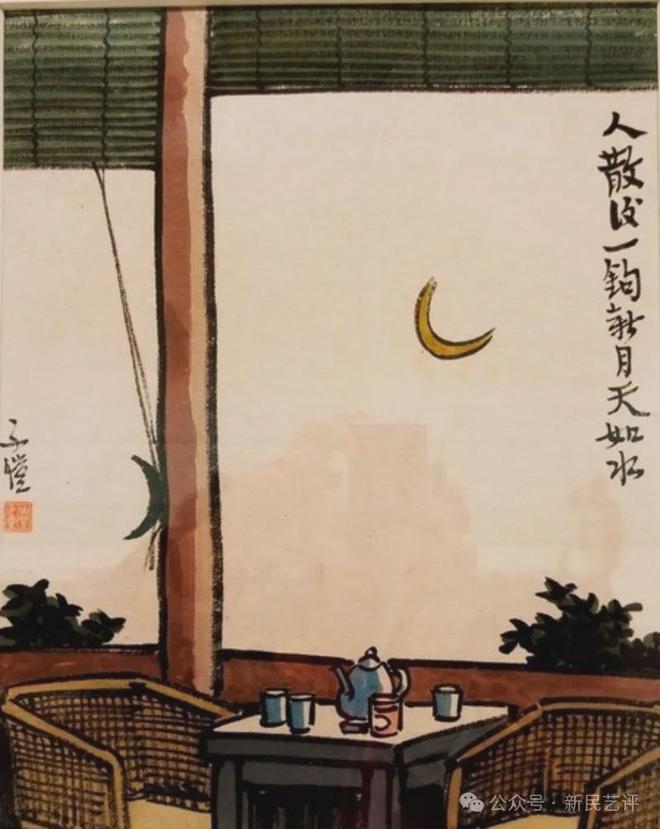 人散後一鈎新月天如水
子愷
公众号 · 新民艺评